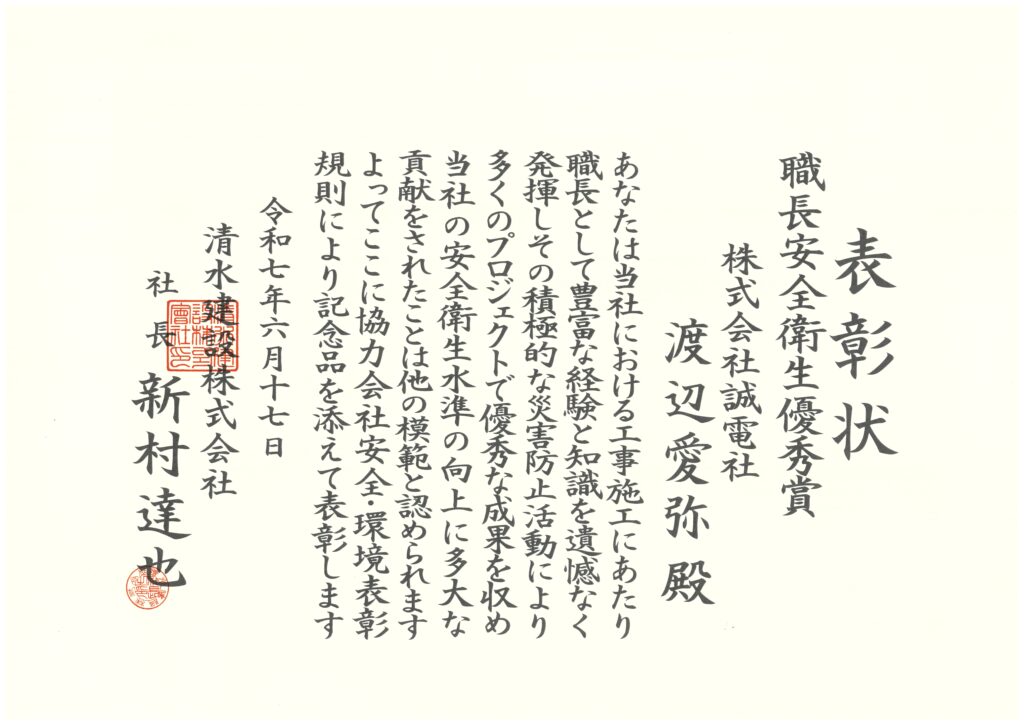 表彰状
職長安全衛生優秀賞
株式会社誠電社
渡辺愛弥殿
あなたは当社における工事施工にあたり
職長として豊富な経験と知識を遺憾なく
発揮しその積極的な災害防止活動により
多くのプロジェクトで優秀な成果を収め
当社の安全衛生水準の向上に多大な
貢献をされたことは他の模範と認められます
よってここに協力会社安全・環境表彰
規則により記念品を添えて表彰します
令和七年六月十七日
清水建設株式会社
社長 新村達也